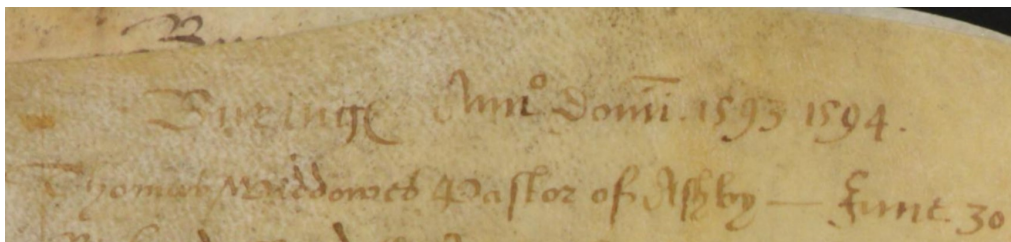 Buringe Anno Domi. 1593 1594.
Thomas Widdowes Pastor of Ashby — June 30